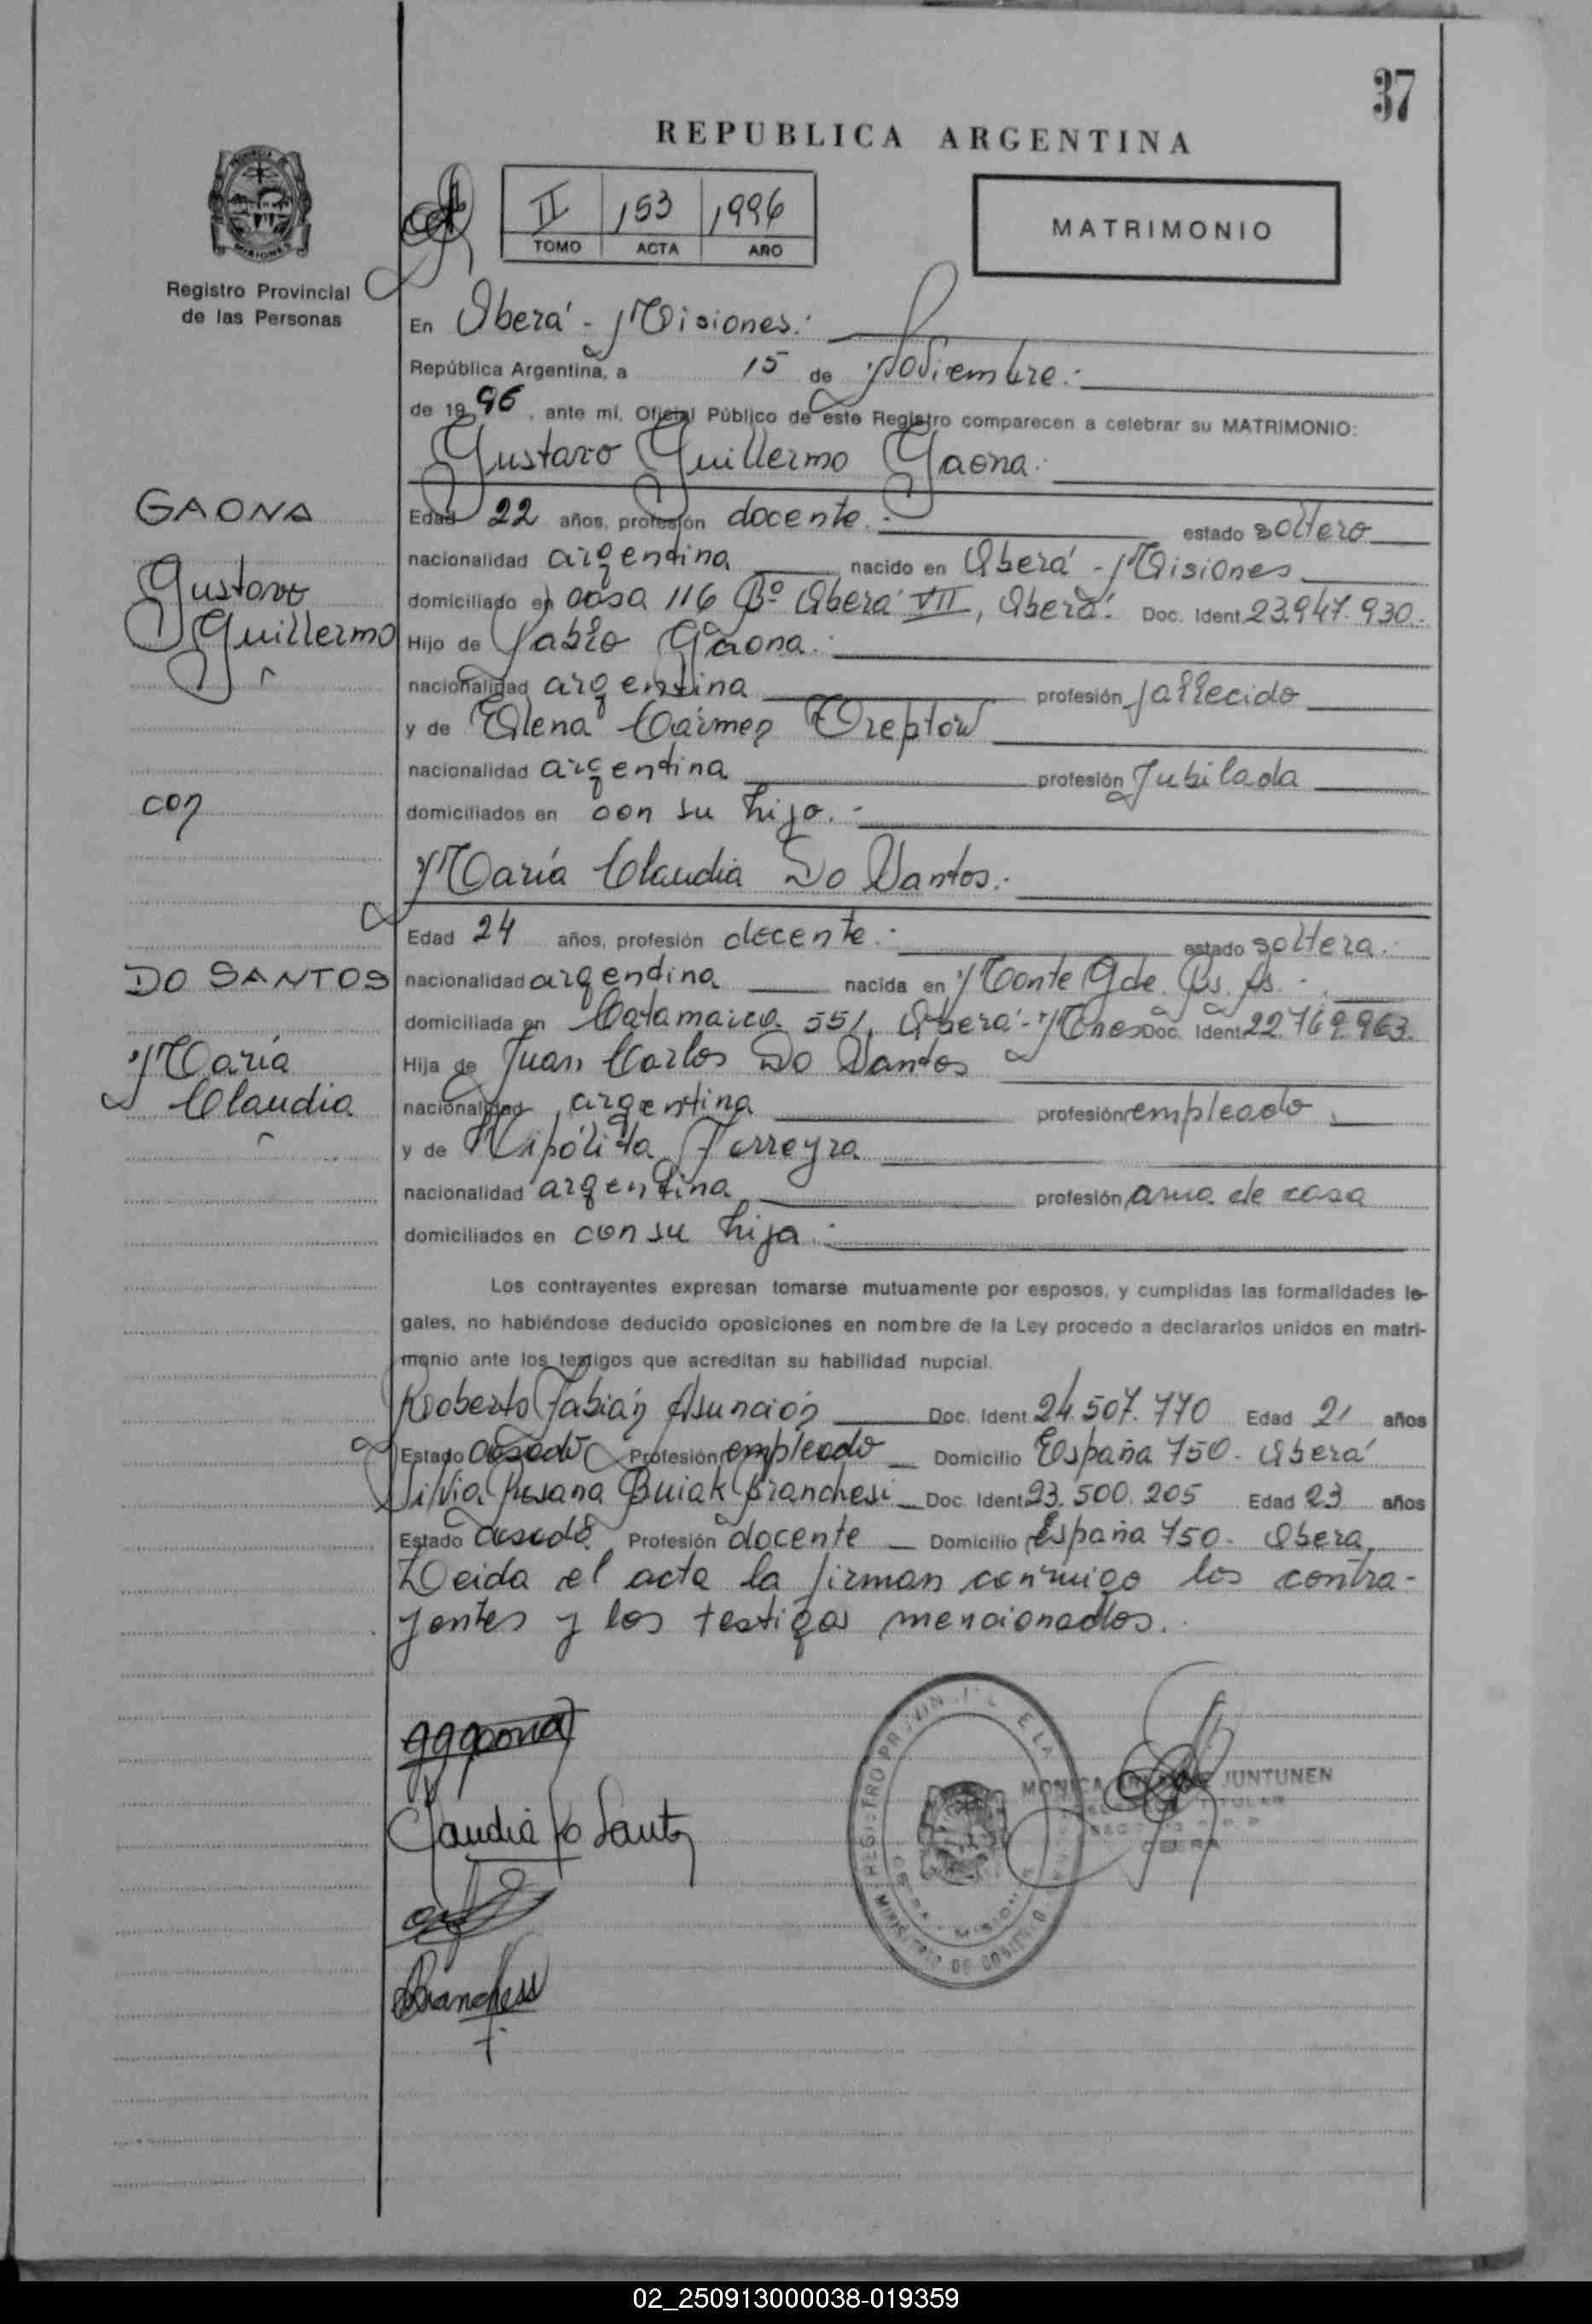 37
REPUBLICA ARGENTINA
II 153 1996
TOMO ACTA AÑO
MATRIMONIO
Registro Provincial
de las Personas
En Oberá - Misiones.-
República Argentina, a 15 de Noviembre.-
de 1996, ante mi, Oficial Público de este Registro comparecen a celebrar su MATRIMONIO:
Gustavo Guillermo Gaona.-
GAONA
Gustavo
Guillermo
Edad 22 años, profesión docente.- estado soltero
nacionalidad argentina nacido en Oberá - Misiones
domiciliado en casa 116 Bº Oberá VII, Oberá. Doc. Ident. 23.947.930.-
Hijo de Pablo Gaona.-
nacionalidad argentina profesión fallecido
y de Elena Carmen
nacionalidad argentina profesión Jubilada
domiciliados en con su hijo.-
con
María Claudia Do Santos.-
Edad 24 años, profesión docente.- estado soltera.-
DO SANTOS
María
Claudia
nacionalidad argentina nacida en Monte Gde. Bs. As.-
domiciliada en Catamarca 551, Oberá - Mnes Doc. Ident. 22.769.963.
Hija de Juan Carlos Do Santos
nacionalidad argentina profesión empleado
y de Hipólita Ferreyra
nacionalidad argentina profesión ama de casa
domiciliados en con su hija.-
Los contrayentes expresan tomarse mutuamente por esposos, y cumplidas las formalidades le-
gales, no habiéndose deducido oposiciones en nombre de la Ley procedo a declararlos unidos en matri-
monio ante los testigos que acreditan su habilidad nupcial.
Roberto Fabián Asunción Doc. Ident. 24.507.770 Edad 21 años
Estado casado Profesión empleado Domicilio España 750 - Oberá
Silvia Rosana Buiak Branchesi Doc. Ident. 93.500.205 Edad 23 años
Estado casada Profesión docente Domicilio España 750 - Oberá
Leida el acta la firman conmigo los contra-
yentes y los testigos mencionados.
GGGaona
Claudia Do Santos
Branchesi
MONICA JUNTUNEN
TITULAR
OBERA
REGISTRO PROVINCIAL DE LA
MINISTERIO DE GOBIERNO
OBERA - MISIONES
02_250913000038-019359